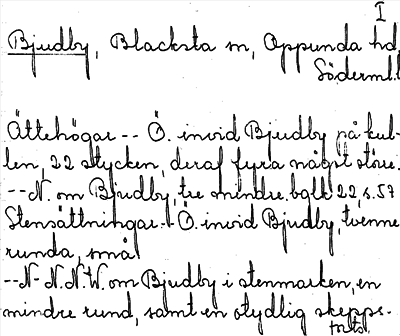 I
Bjudby, Blacksta sn, Oppunda hd,
Söderml.l
Ättehögar -- Ö. invid Bjudby på kul-
len, 22 stycken, deraf fyra något större.
-- N. om Bjudby, tre mindre. bglk 22, s. 57
Stensättningar -- Ö. invid Bjudby, tvenne
runda, små.
-- N-N.N.W. om Bjudby i stenmarken, en
mindre rund, samt en otydlig skepps-
forts.